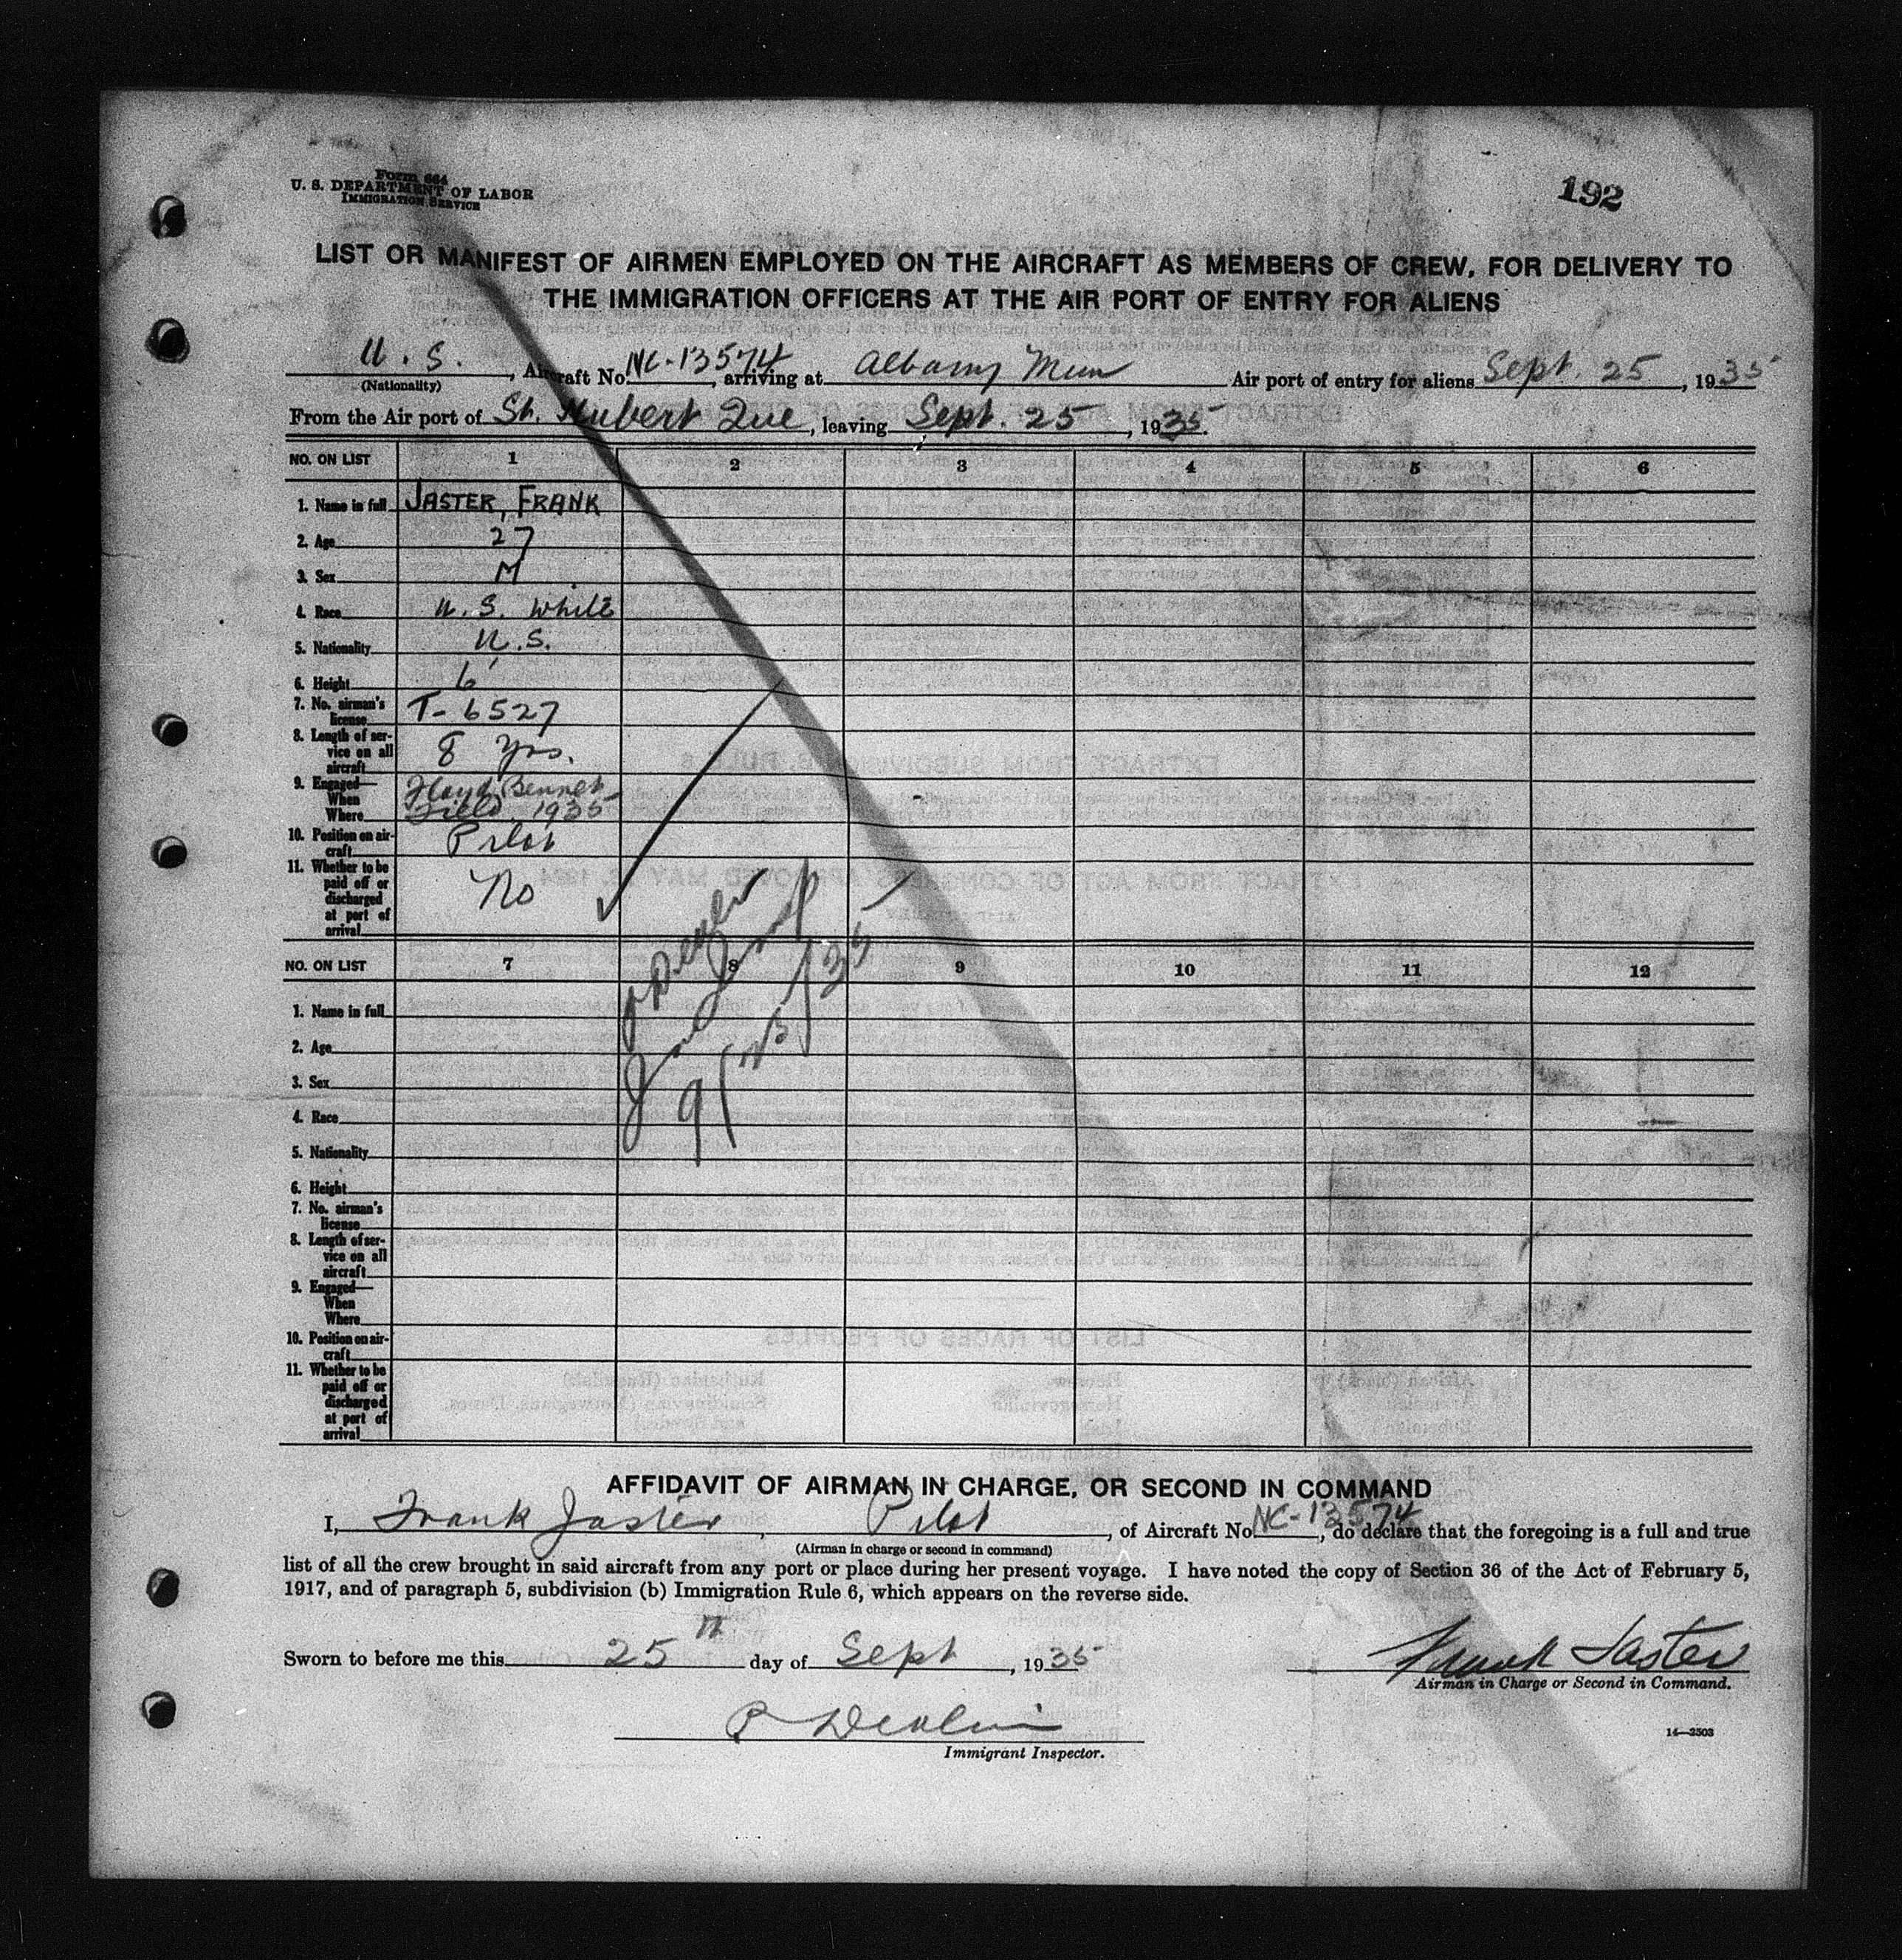 Form 664
U. S. DEPARTMENT OF LABOR
IMMIGRATION SERVICE
192
LIST OR MANIFEST OF AIRMEN EMPLOYED ON THE AIRCRAFT AS MEMBERS OF CREW, FOR DELIVERY TO
THE IMMIGRATION OFFICERS AT THE AIR PORT OF ENTRY FOR ALIENS
U. S., Aircraft No. NC-13574, arriving at Albany Mun Air port of entry for aliens Sept. 25, 1935
(Nationality)
From the Air port of St. Hubert Que, leaving Sept. 25, 1935.
NO. ON LIST 1 2 3 4 5 6
1. Name in full JASTER, FRANK
2. Age 27
3. Sex M
4. Race U. S. White
5. Nationality U.S.
6. Height 6'
7. No. airman's license T-6527
8. Length of service on all aircraft 8 yrs.
9. Engaged— When Where Floyd Bennet Field 1935
10. Position on aircraft Pilot
11. Whether to be paid off or discharged at port of arrival No
NO. ON LIST 7 8 9 10 11 12
1. Name in full
2. Age
3. Sex
4. Race
5. Nationality
6. Height
7. No. airman's license
8. Length of service on all aircraft
9. Engaged— When Where
10. Position on aircraft
11. Whether to be paid off or discharged at port of arrival
AFFIDAVIT OF AIRMAN IN CHARGE, OR SECOND IN COMMAND
I, Frank Jaster, Pilot, of Aircraft No. NC-13574, do declare that the foregoing is a full and true
(Airman in charge or second in command)
list of all the crew brought in said aircraft from any port or place during her present voyage. I have noted the copy of Section 36 of the Act of February 5,
1917, and of paragraph 5, subdivision (b) Immigration Rule 6, which appears on the reverse side.
Sworn to before me this 25th day of Sept, 1935
Frank Jaster
Airman in Charge or Second in Command.
P Devlin
Immigrant Inspector.
14—2503